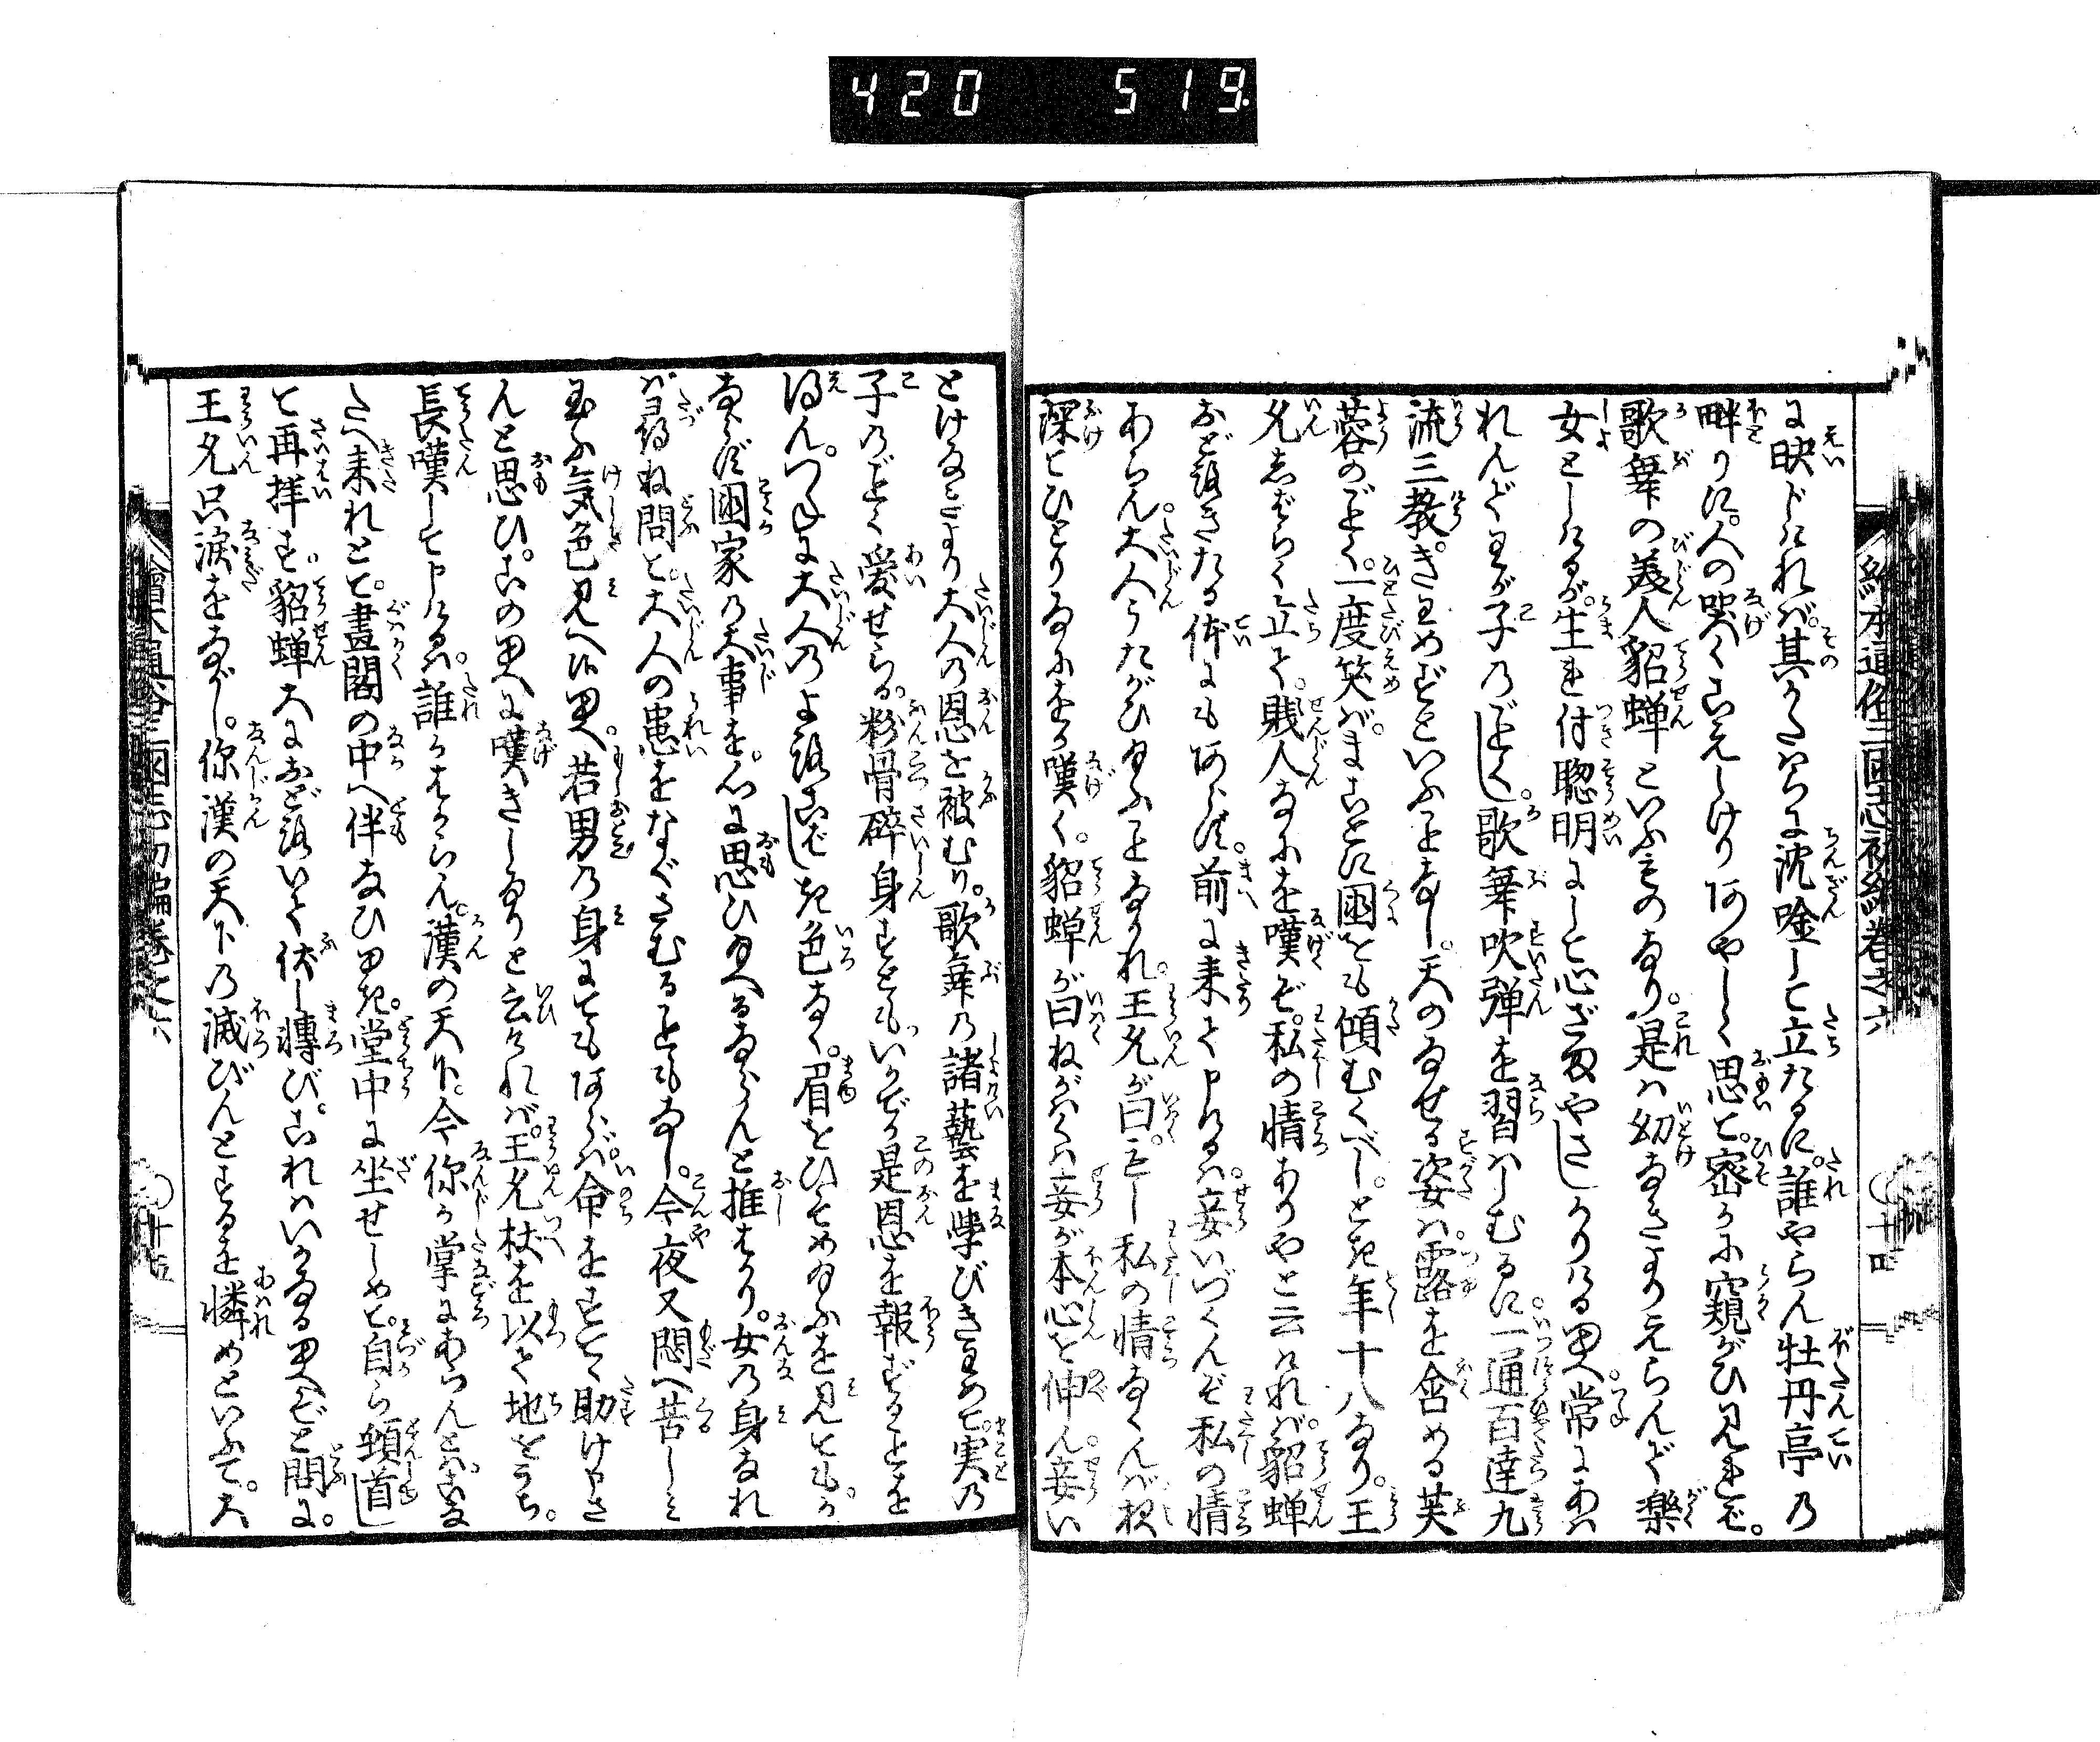 420 519
絵本通俗三国志初編巻之六 ○十四
に映じければ。其かたはらに沈吟して立たるに。誰やらん牡丹亭の
畔りに。人の哭く声しけり。あやしく思て。密かに窺がひ見れば。
歌舞の美人貂蝉といふものなり。是は幼なきよりえらんで楽
女としけるが。生れ付聡明にして心ざまやさしかりける男。常にあは
れんで王が子のごとくし。歌舞吹弾を習はしむるに。一通百達九
流三教。きはめずといふことなし。天のなせる姿は。露を含める芙
蓉のごとく。一度笑ば。まことに国をも傾むくべし。とき年十八なり。王
允しばらく立て。賤人なにを嘆ぞ。私の情ありやと云ければ。貂蝉
おどろきたる体にもあらず。前に来て申けるは。妾いづくんぞ私の情
あらん。大人うたがひ給ふことなかれ。王允が曰。もし私の情なくんば夜
深てひとりなにをか嘆く。貂蝉が曰ねがはくは妾が本心を伸ん。妾い
とけなきより大人の恩を被むり。歌舞の諸藝を学びきはめて。実の
子のごとく愛せらる。粉骨砕身すとも。いかでか是恩を報ずることを
得ん。つねに大人のよろこばしき色なく。眉をひそめ給ふを見ても。か
ならず国家の大事を。心に思ひ給ふならんと推はかり。女の身なれ
ば尋ね問て。大人の患をなぐさむることもなし。今夜又悶へ苦しみ
玉ふ気色見へ候男。若男の身にてもあらば。命をすてゝ助け申さ
んと思ひ。この男に嘆きしなりと云ければ。王允杖を以て地をうち。
長嘆して申けるは。誰かはからん。漢の天下。今你が掌にあらんとは。こな
たへ来れとて。畫閣の中へ伴なひ申き。堂中に坐せしめて。自ら頓首し
て再拝す。貂蝉大におどろいて伏し轉び。これはいかなる男ぞと問に。
王允只涙をながし。你漢の天下の滅びんとするを憐めといふて。大
絵本通俗三国志初編巻之六 ○十五